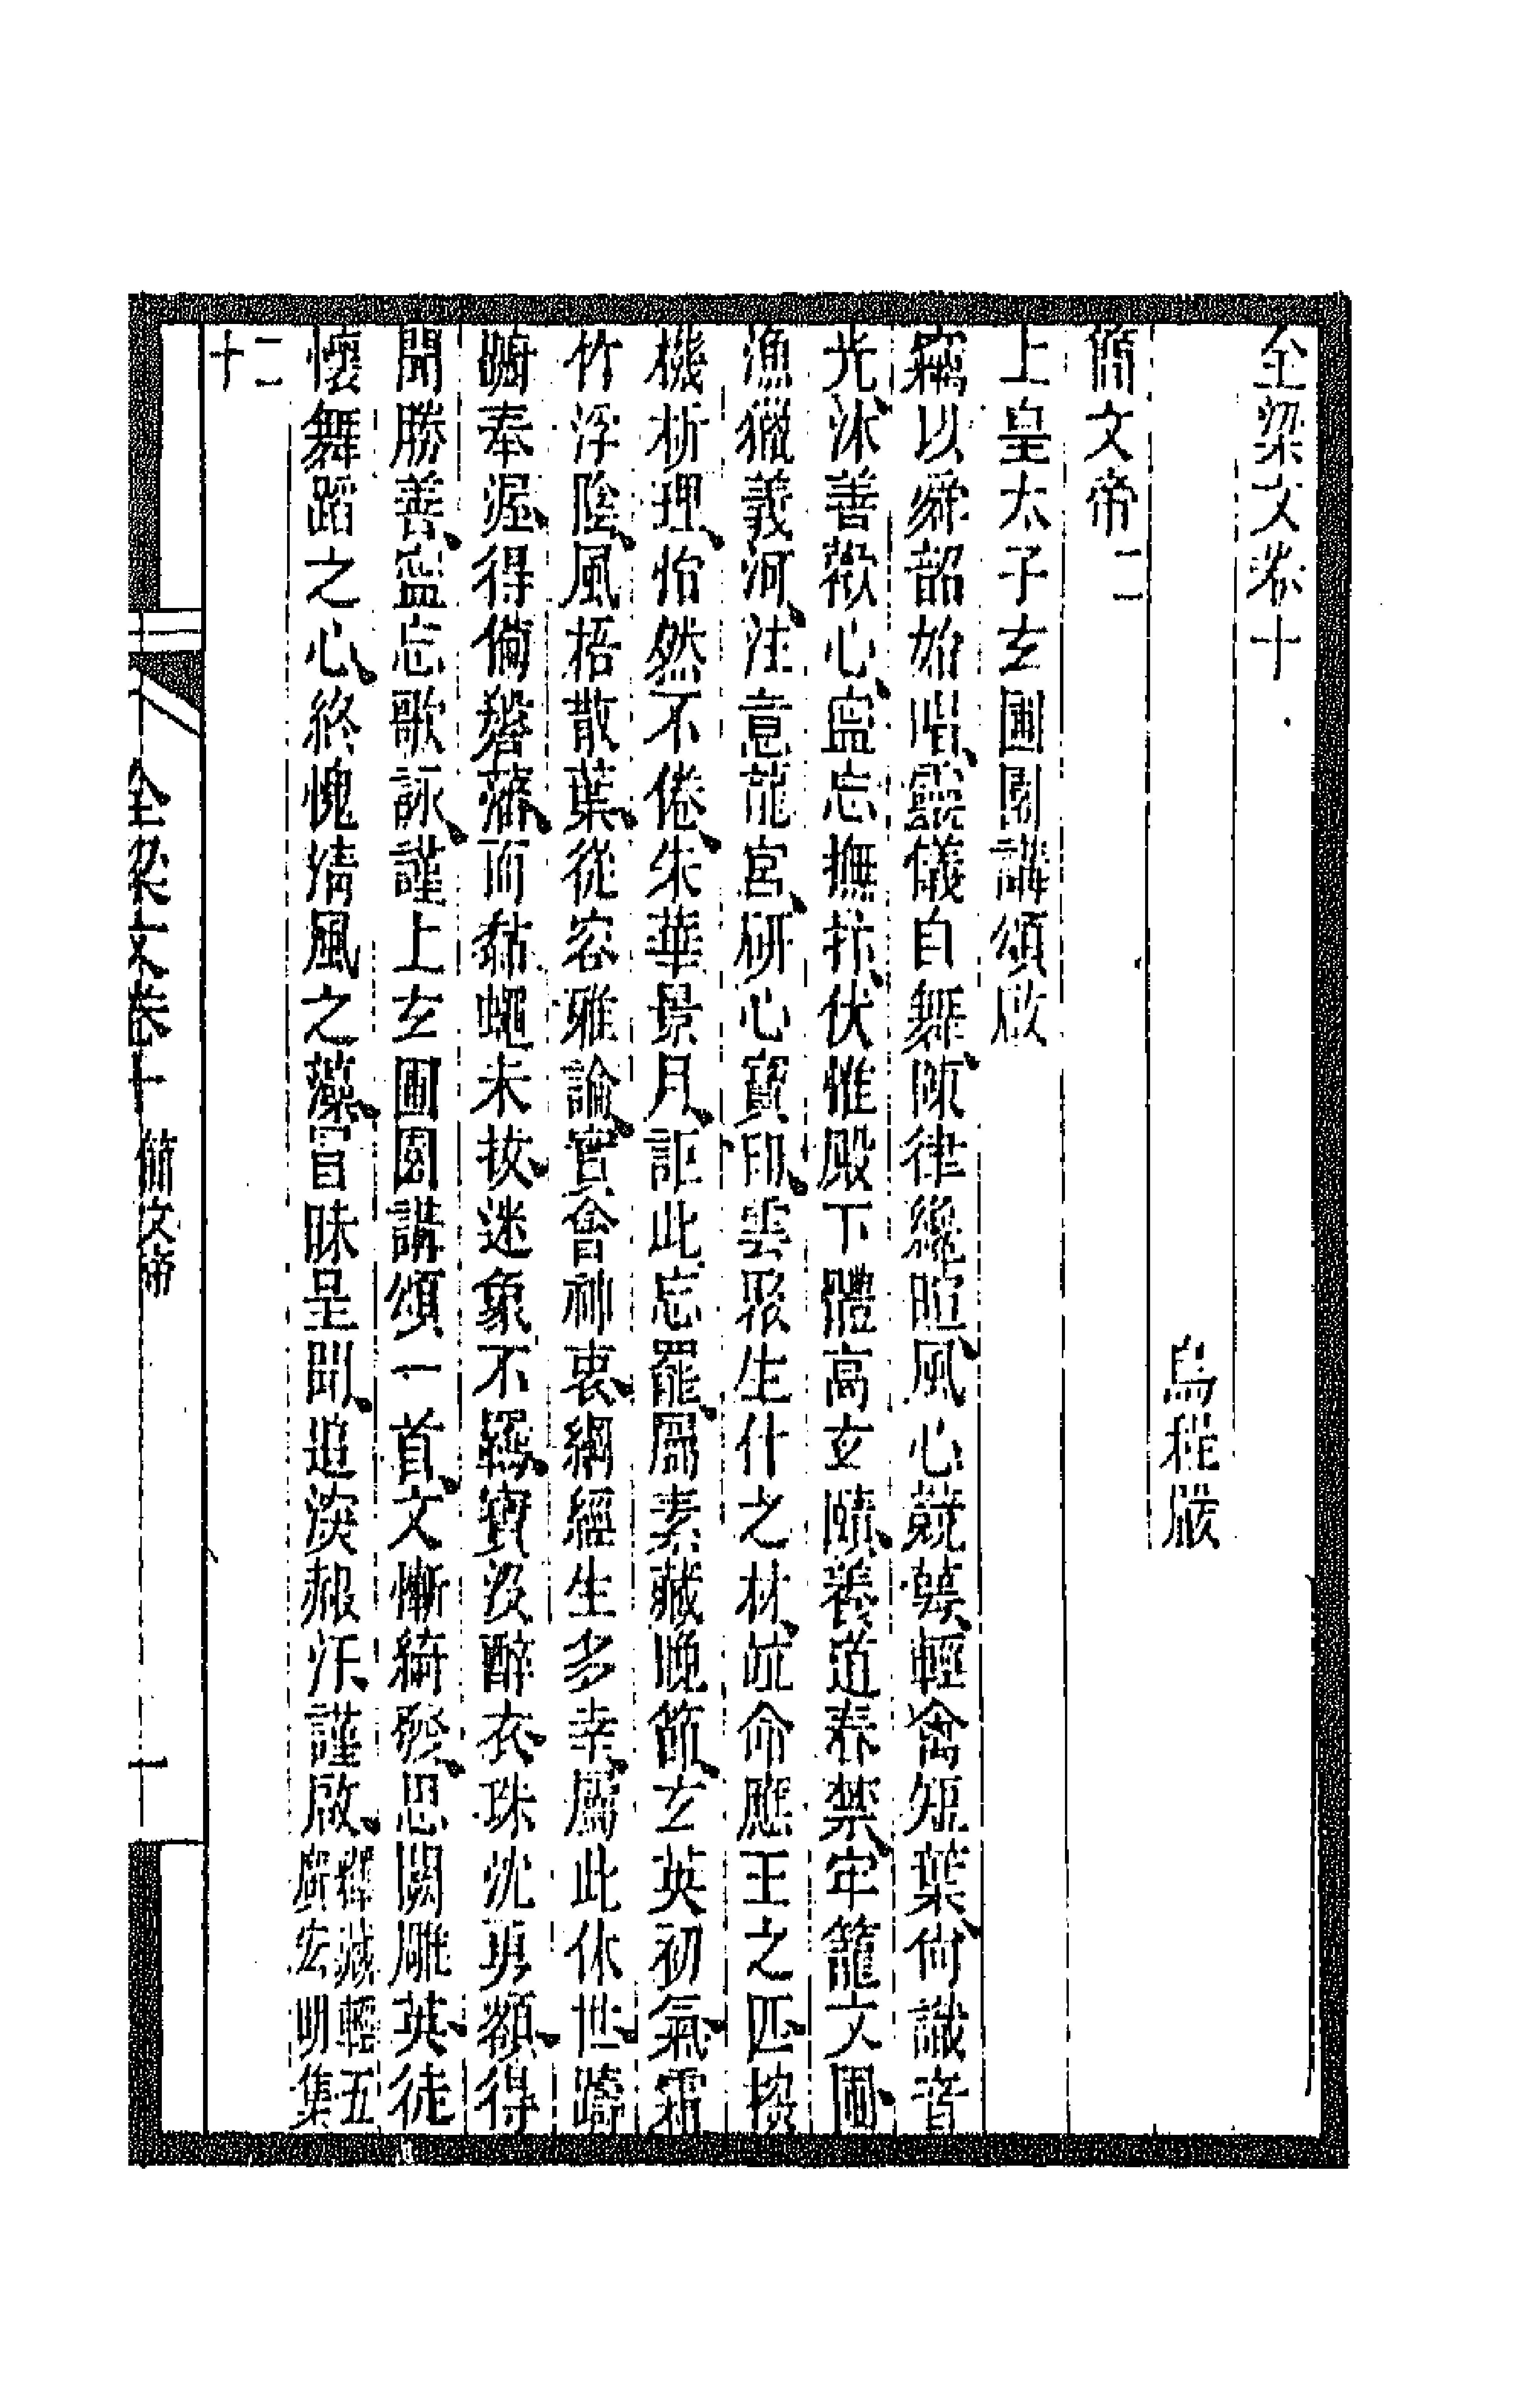 全梁文卷十
烏程嚴
簡文帝二
上皇太子玄圃園講頌啟
竊以舜韶始唱靈儀自舞陳律纔暄風心競萼輕禽短葉尚識音
光沐善歡心寍忘撫抃伏惟殿下體高玄賾養道春禁牢籠文圃
漁獵義河注意龍宮研心寶印雲聚生什之材並命應王之匹探
機析理怡然不倦朱華景月詎此忘罷屬素藏晚節玄英初氣霜
竹浮陰風梧散葉從容雅論實會神衷綱經生多幸屬此休世躊
躕奉渥得備磐藩而黏蠅未拔迷象不羈實沒醉衣珠沈勇額得
聞勝善寍忘歌詠謹上玄圃園講頌一首文慚綺發思闕雕英徒
懷舞蹈之心終愧清風之藻冒昧呈聞追深赧汗謹啟釋藏輕五廣宏明集
二十
全梁文卷十 簡文帝 一